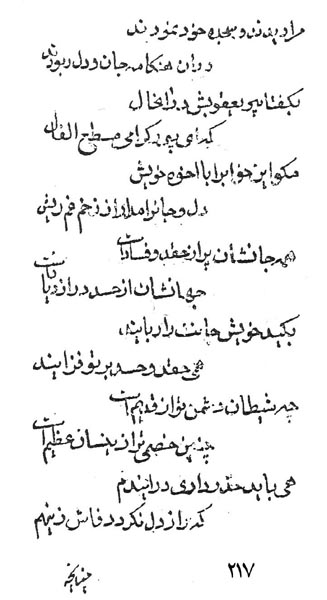 مرا دیدند و سجده خود نمودند
در آن هنگامه جان و دل ربودند
بگفتا پیر یعقوبش در انحال
که ای پور گرامی مطلع الفال
مگو این خواب را با اخوه خویش
دل و جانرا مدار از زخم غم ریش
همه جانشان پر از حقد و فساد است
جهانشان از حسد در ازدیاد است
بکید خویش جانت را ربایند
همی حقد و حسد بر تو فزایند
چه شیطان دشمن تو از قدیم است
چنین خصمی ترا زینسان عظیم است
همی باید حذر داری در اینهم
که راز دل نگردد فاش زینهم
۲۱۷